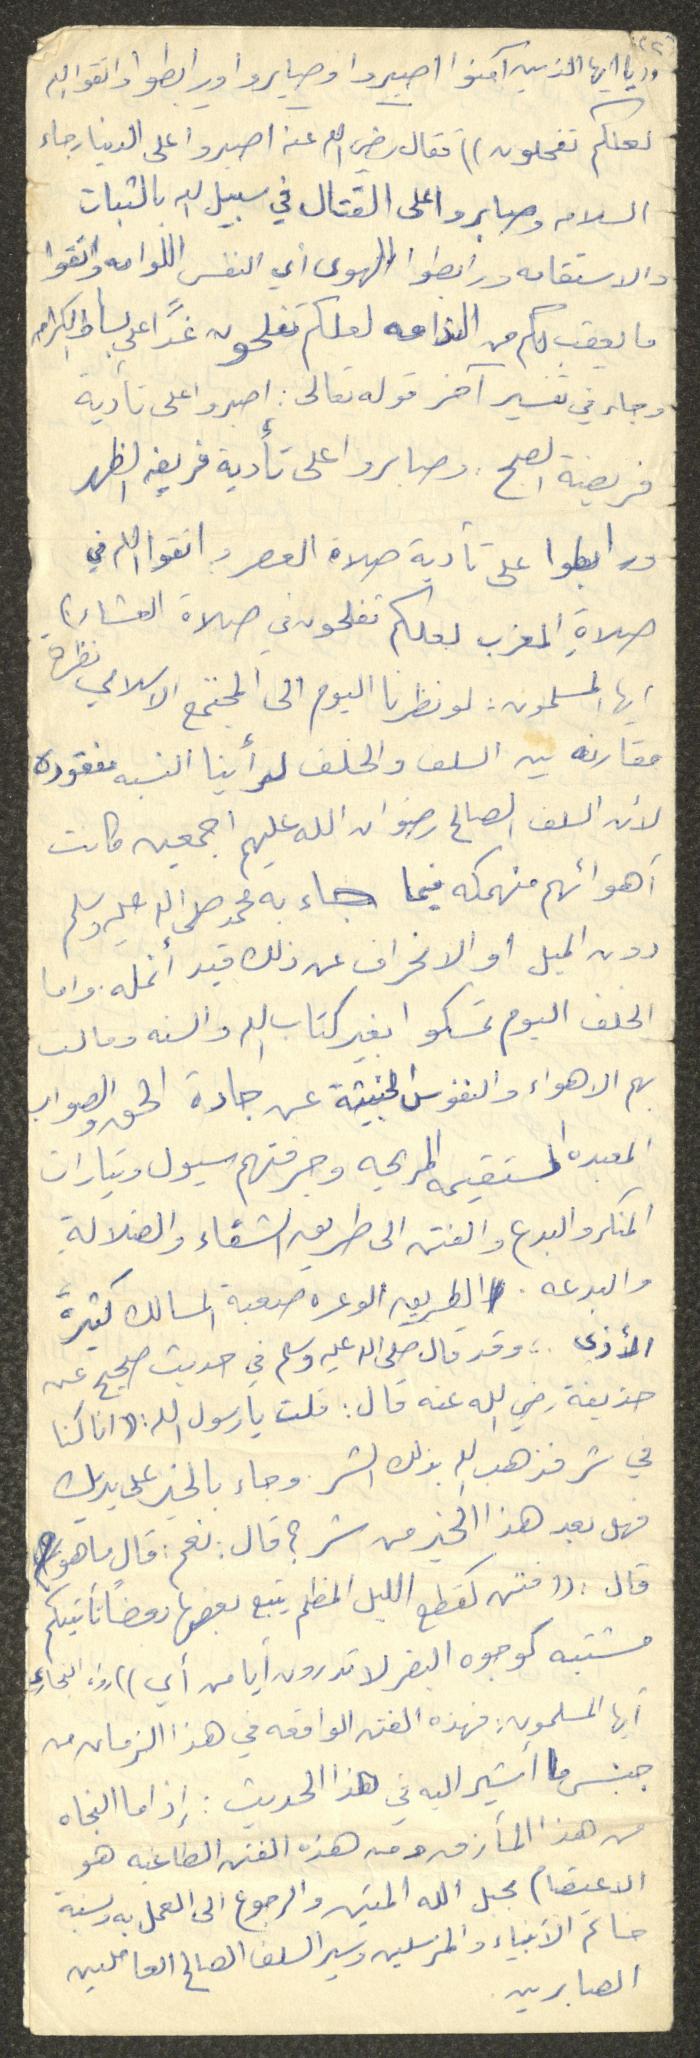 (٢)
((يا ايها الذين آمنوا اصبروا وصابروا ورابطوا واتقوا الله
لعلكم تفلحون)) فقال رضي الله عنه اصبروا على الدنيا رجاء
السلامه وصابروا على القتال في سبيل الله بالثبات
والاستقامه ورابطوا الهوى أي النفس اللوامه واتقوا
ما يعقب لكم من الندامه لعلكم تفلحون غدًا على بساط الكرامه
وجاء في تفسير آخر قوله تعالى: اصبروا على تأدية
فريضة الصبح. وصابروا على تأدية فريضه الظهر
ورابطوا على تأدية صلاة العصر واتقوا الله في
صلاةِ المغرب لعلكم تفلحون في صلاة العشاء))
ايها المسلمون: لو نظرنا اليوم الى المجتمع الاسلامي نظرة
مقارنه بين السلف والخلف لرأينا النسبه مفقوده
لأن السلف الصالح رضوان الله عليهم اجمعين كانت
أهوائهم منهمكه فيما جاء به محمد صلى الله عليه وسلم
دون الميل او الانحراف عن ذلك قيد أنمله. واما
الخلف اليوم تمسكوا بغير كتاب الله والسنه ومالت
بهم الاهواء والنفوس الخبيثة عن جادة الحق والصواب
المعبده المستقيمه المريحه وجرفتهم سيول وتيارات
المنكر والبدع والفتن الى طريق الشقاء والضلالةِ
والبدعه. الطريق الوعره صعبة المسالك كثيرةً
الأذى.. وقد قال صلى الله عليه وسلم في حديث صحيح عن
حذيفة رضي الله عنه قال: قلت يا رسول الله: ((انا كنا
في شر فذهب الله بذلك الشر. وجاء بالخير على يديك
فهل بعد هذا الخير من شر؟ قال: نعم: قال ما هو
قال: ((فتن كقطع الليل المظلم يتبع بعضها بعضاً تأتيكم
مشتبه كوجوه البقر لا تدرون أيا من أي)) رواه البخاري
أيها المسلمون: فهذه الفتن الواقعه في هذا الزمان من
جنس ما أشير اليه في هذا الحديث: إذاما النجاه
من هذا المأزق ومن هذه الفتن الطاغيه هو
الاعتصام بحبل الله المتين والرجوع الى العمل به وسنة
خاتم الأنبياء والمرسلين وسير السلف الصالح العاملين
الصابرين.